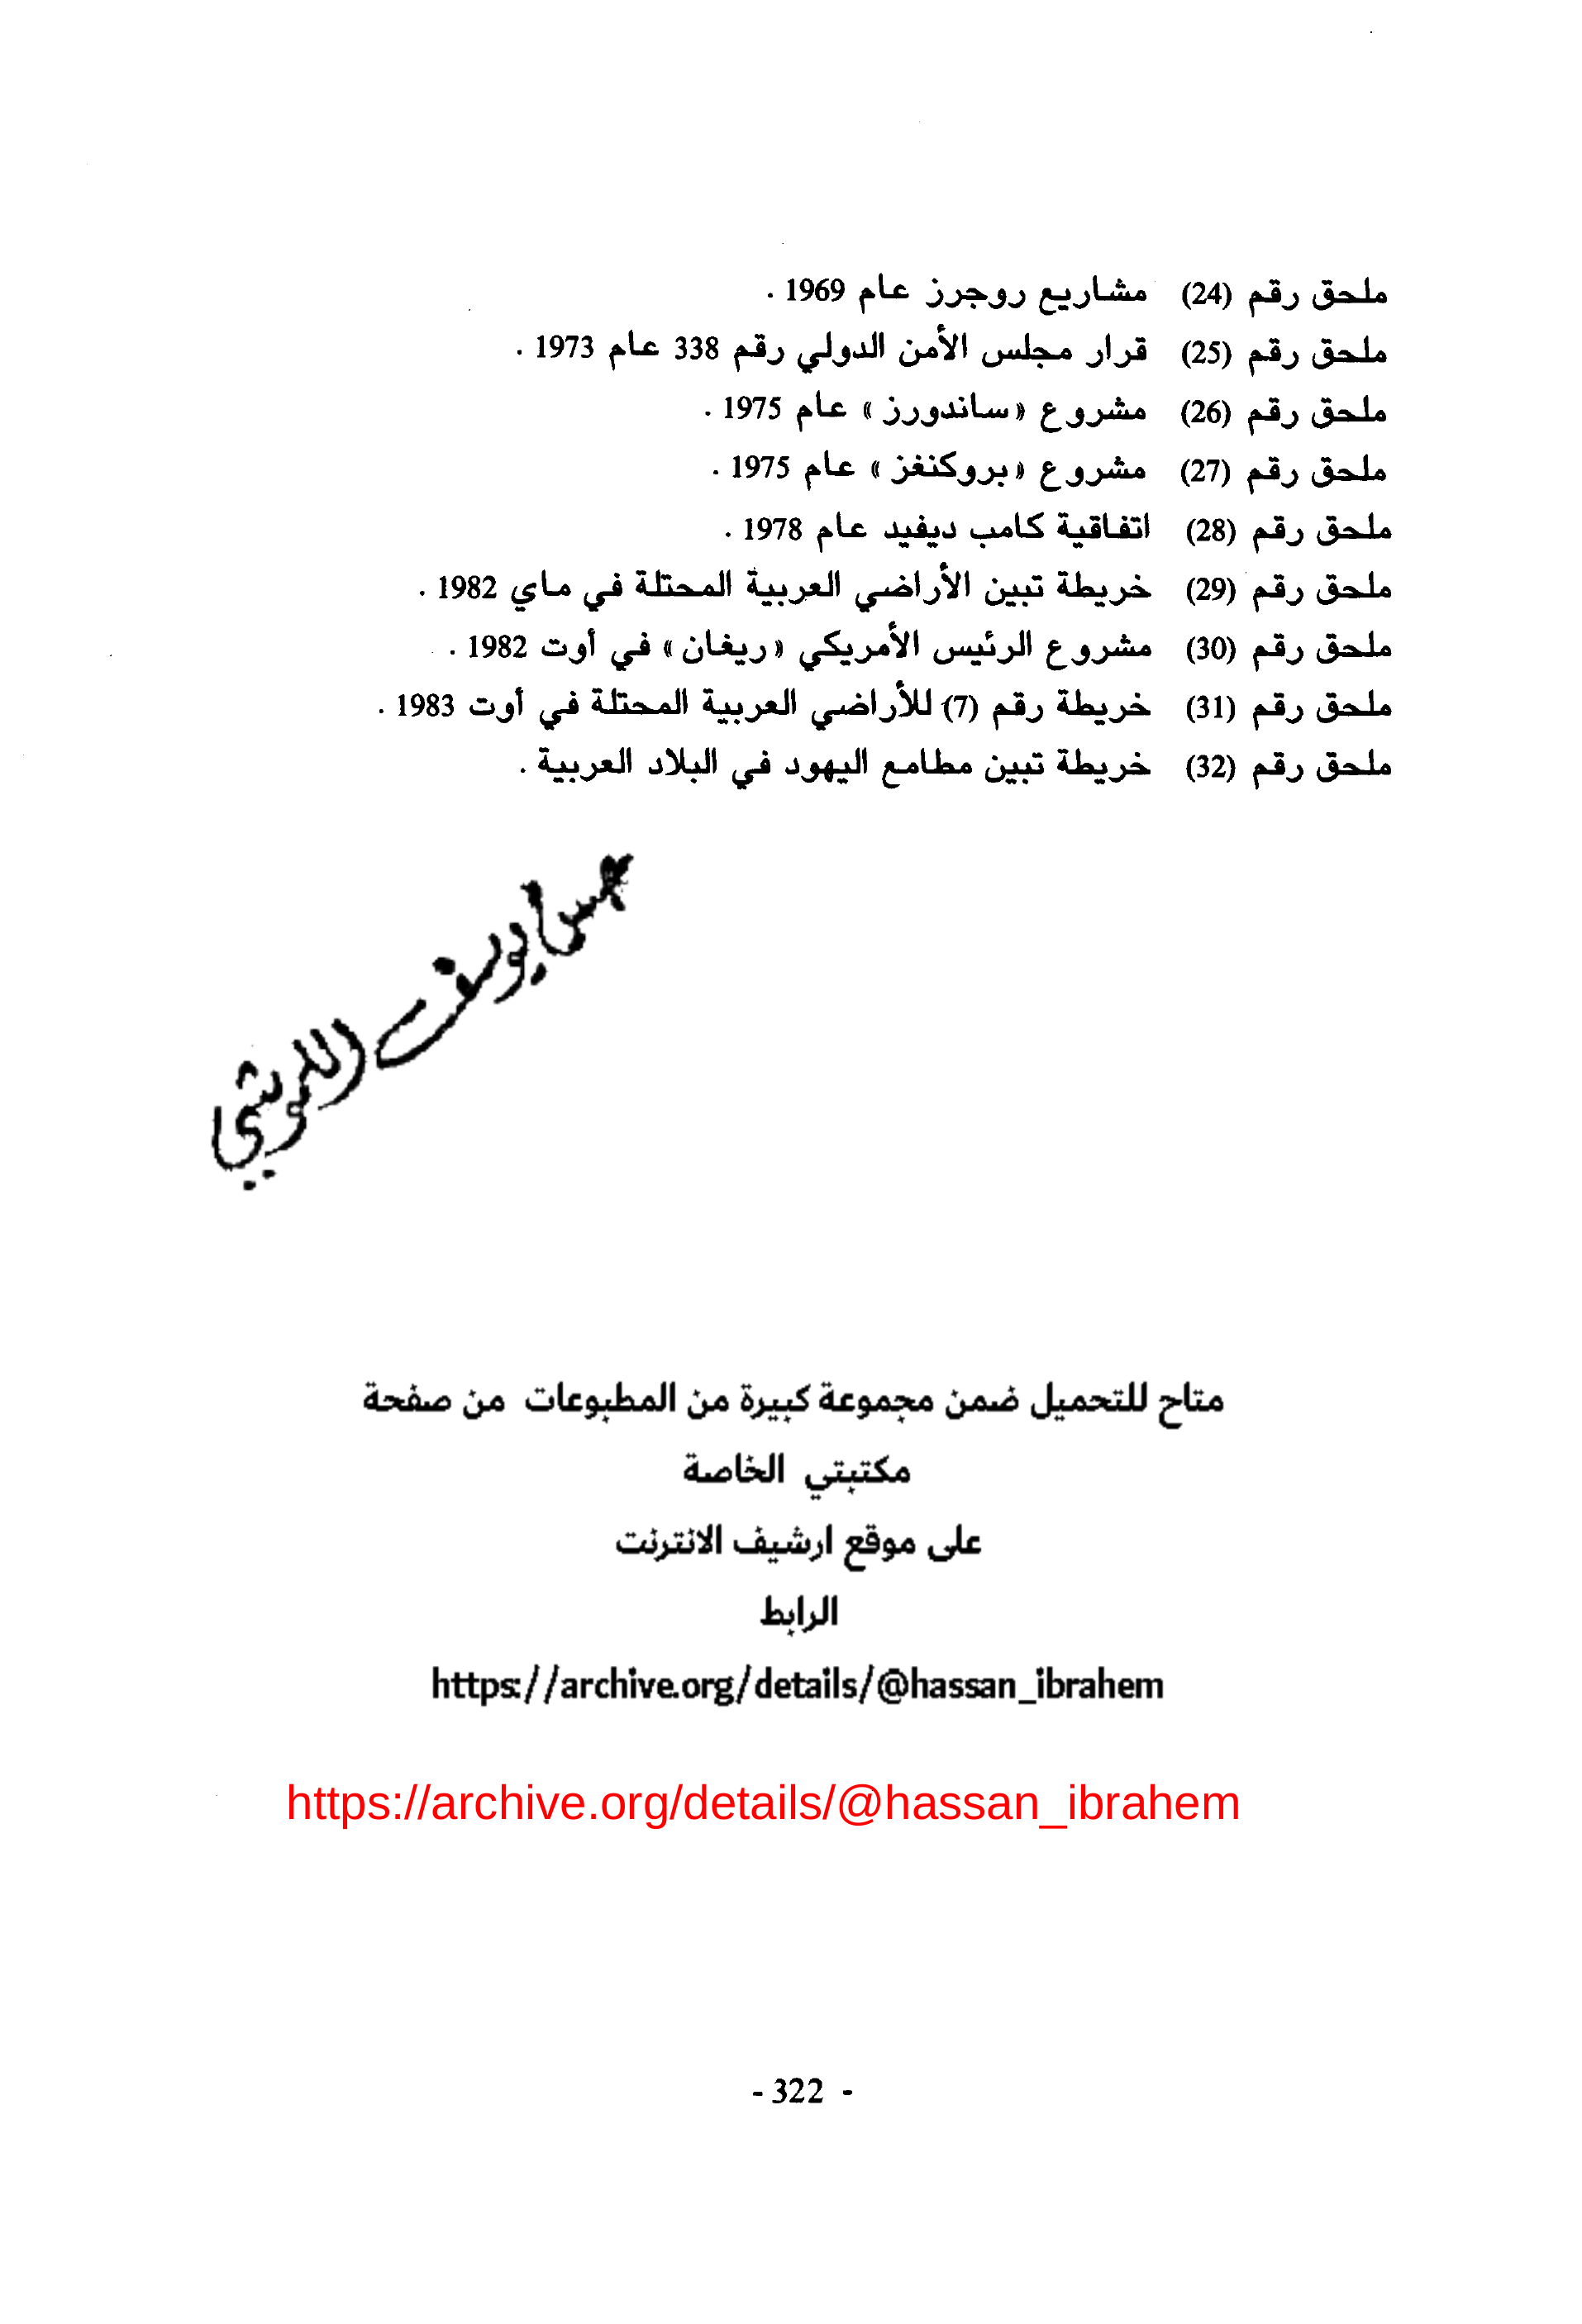 ملحق رقم (24) مشاريع روجرز عام 1969 .
ملحق رقم (25) قرار مجلس الأمن الدولي رقم 338 عام 1973 .
ملحق رقم (26) مشروع «ساندورز» عام 1975 .
ملحق رقم (27) مشروع «بروكنغز» عام 1975 .
ملحق رقم (28) اتفاقية كامب ديفيد عام 1978 .
ملحق رقم (29) خريطة تبين الأراضي العربية المحتلة في ماي 1982 .
ملحق رقم (30) مشروع الرئيس الأمريكي «ريغان» في أوت 1982 .
ملحق رقم (31) خريطة رقم (7) للأراضي العربية المحتلة في أوت 1983 .
ملحق رقم (32) خريطة تبين مطامع اليهود في البلاد العربية .
يوسف
متاح للتحميل ضمن مجموعة كبيرة من المطبوعات من صفحة
مكتبتي الخاصة
على موقع ارشيف الانترنت
الرابط
https://archive.org/details/@hassan_ibrahem
https://archive.org/details/@hassan_ibrahem
- 322 -